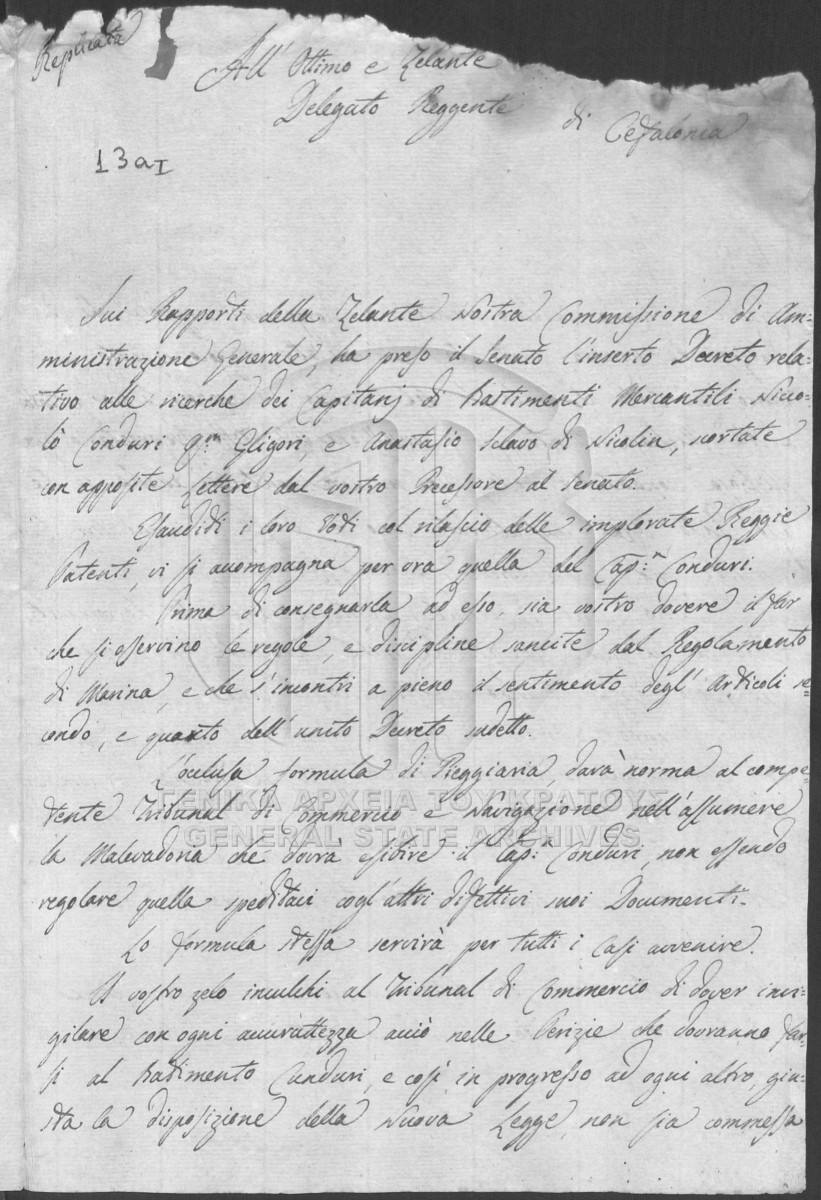 Replicata
All' Ottimo e Zelante
Delegato Reggente di Cefalonia
13aI
Sui Rapporti della Zelante Nostra Commissione di Am=
ministrazione Generale, ha preso il Senato l'inserto Decreto rela=
tivo alle ricerche dei Capitanj di Bastimenti Mercantili Nico=
lò Conduri qm Gligori, e Anastasio Sclavo di Nicolin, scortate
con apposite Lettere dal vostro Precessore al Senato.
Esaudidi i loro Vodi col rilascio delle implorate Reggie
Patenti, vi si accompagna per ora quella del Capn Conduri.
Prima di consegnarla ad esso, sia vostro dovere il far
che si osservino le regole, e discipline sancite dal Regolamento
di Marina, e che s'incontri a pieno il sentimento degl' Articoli se=
condo, e quarto dell' unito Decreto sudetto.
L'oclusa formula di Pieggiaria, darà norma al compe=
tente Tribunal di Commercio e Navigazione nell' assumere
la Malevadoria che dovrà esibire il Capn Conduri, non essendo
regolare quella speditaci cogl' altri difettivi suoi Documenti.
La formula stessa servirà per tutti i Casi avvenire.
Il vostro zelo inculchi al Tribunal di Commercio di dover invi=
gilare con ogni accurattezza acciò nelle Perizie che dovranno far=
si al Bastimento Conduri, e così in progresso ad ogni altro, giu=
sta la disposizione della Nuova Legge, non sia commessa
ΓΕΝΙΚΑ ΑΡΧΕΙΑ ΤΟΥ ΚΡΑΤΟΥΣ
GENERAL STATE ARCHIVES